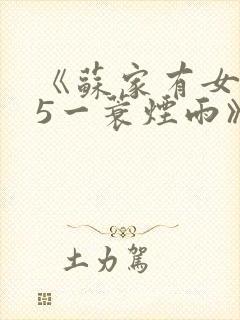 《蘇家有女
5一蓑煙雨》
土力駕